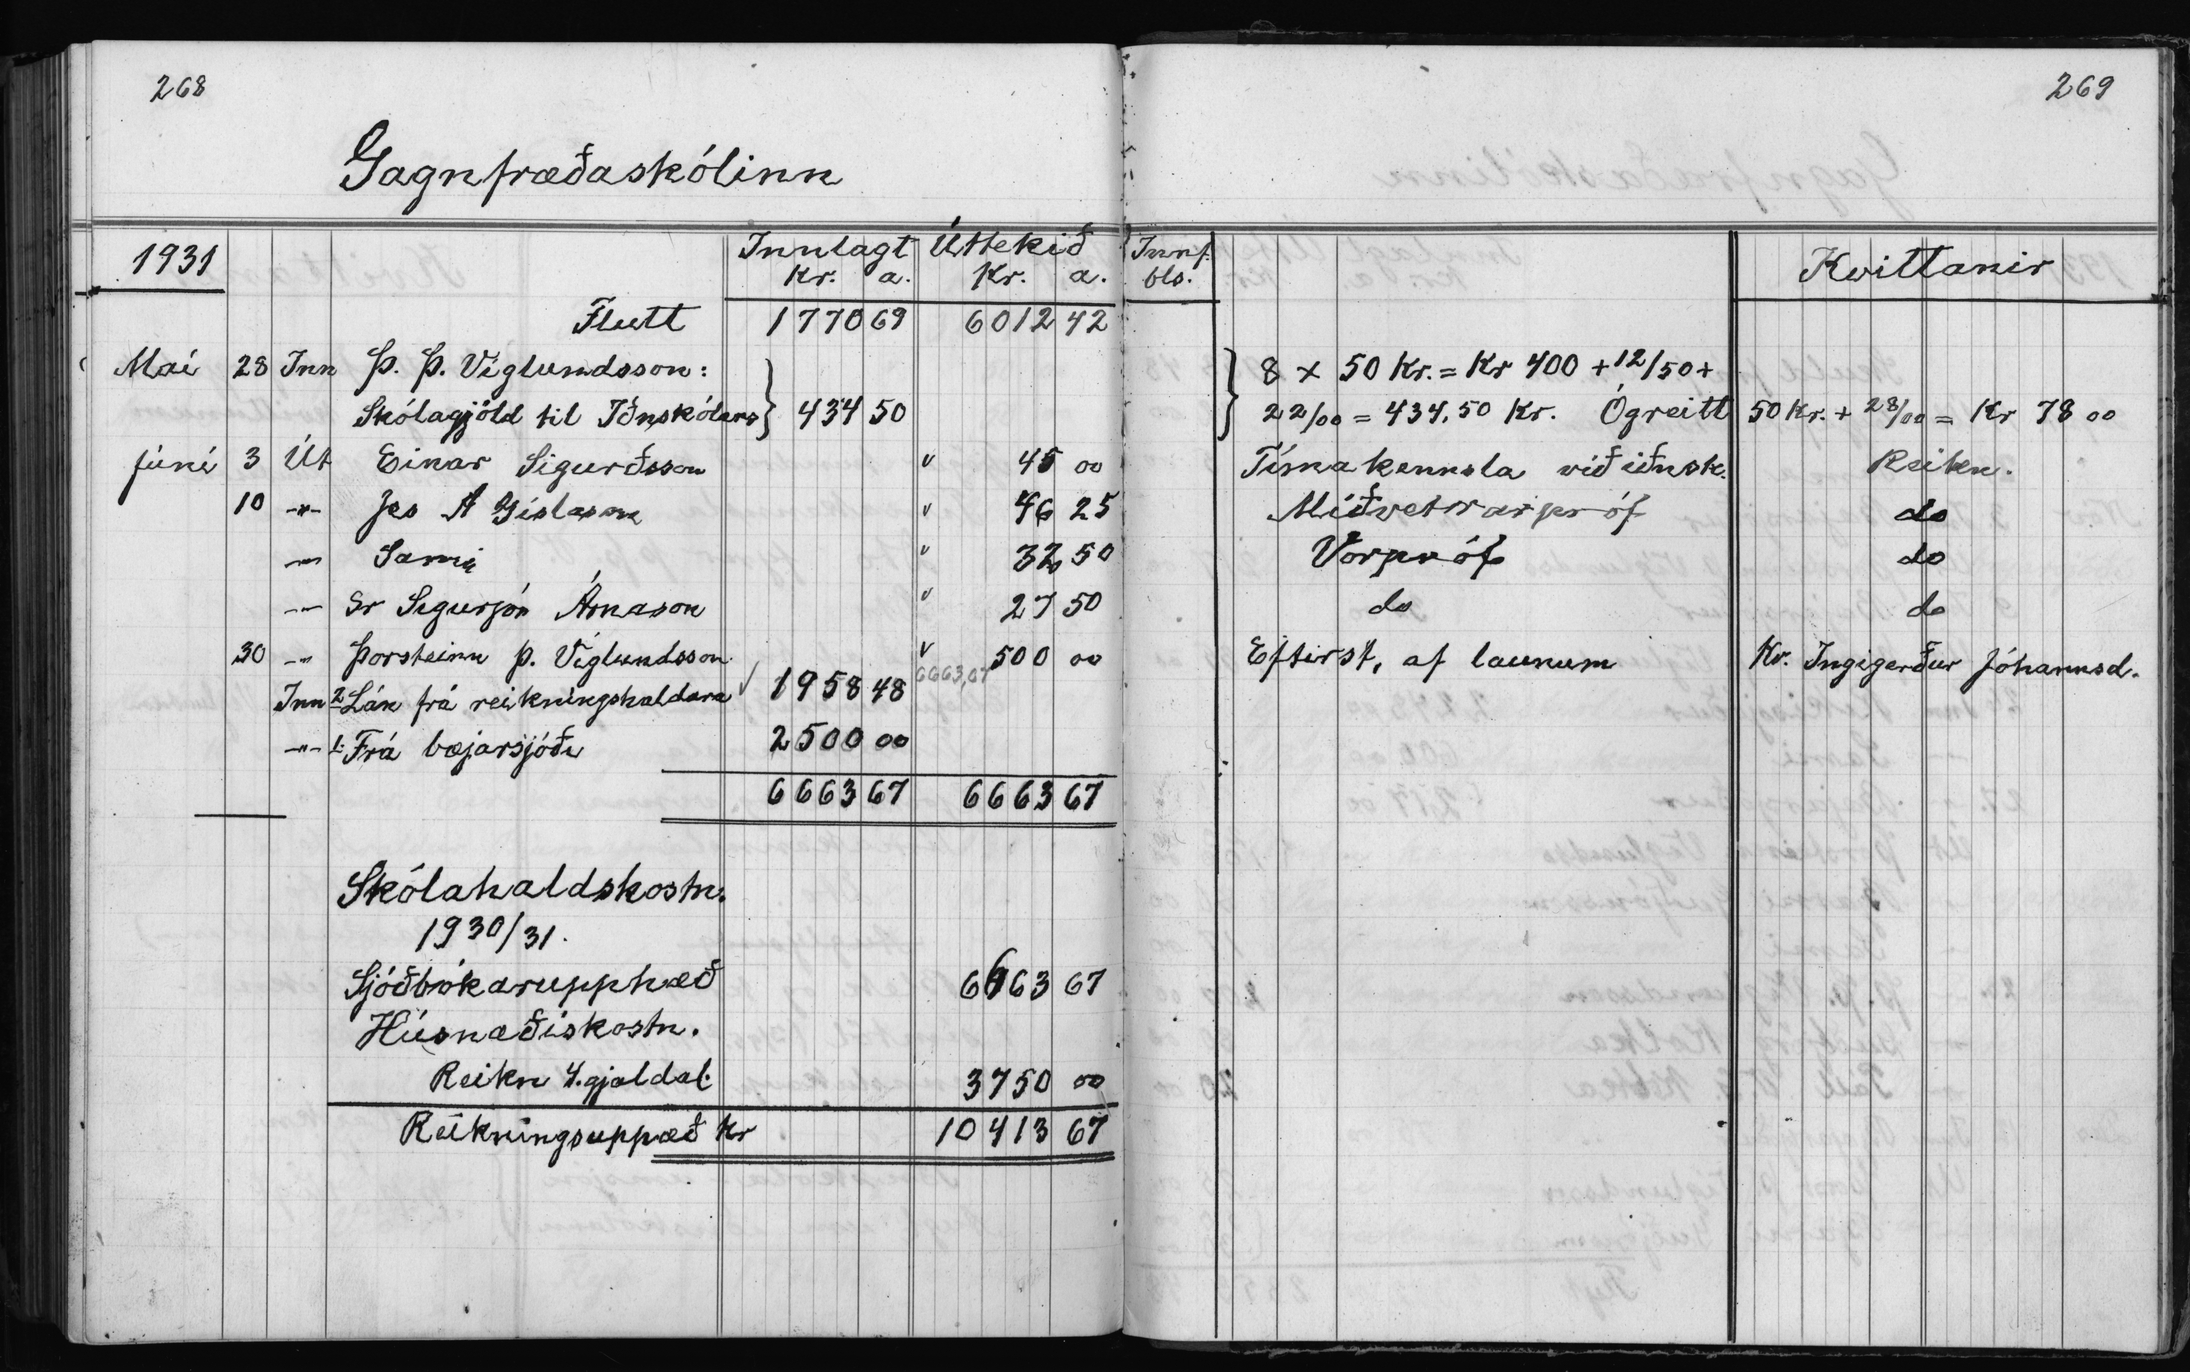 268
Gagnfræðaskólinn
1931 Innlagt Úttekið
Kr. a. Kr. a.
Flutt 1770 69 6012 42
Maí 28 Inn Þ. Þ. Víglundsson:
Skólagjöld til Iðnskólans } 434 50
Júní 3 Út Einar Sigurðsson v 45 00
10 -"- Jes A Gíslason v 46 25
-"- Sami v 32 50
-"- Sr Sigurjón Árnason v 27 50
30 -"- Þorsteinn Þ. Víglundsson v 500 00
6663,67
Inn 2. Lán frá reikningshaldara √ 1958 48
-"- 1. Frá bæjarsjóði 2500 00
6663 67 6663 67
Skólahaldskostn.
1930/31.
Sjóðbókarupphæð 6663 67
Húsnæðiskostn.
Reikn 4. gjaldal. 3750 00
Reikningsuppæð Kr 10413 67
269
Innf. bls. Kvittanir
} 8 x 50 Kr. = Kr 400 + 12/50 +
22/00 = 434.50 Kr. Ógreitt 50 Kr. + 28/00 = Kr 78 00
Tímakennsla við iðnsk. Reikn.
Miðvetrarpróf do
Vorpróf do
do do
Eftirst. af launum Kv. Ingigerður Jóhannsd.